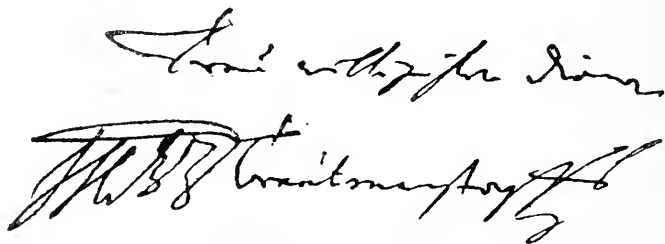 Treü willigister diener
Trautmanstorff